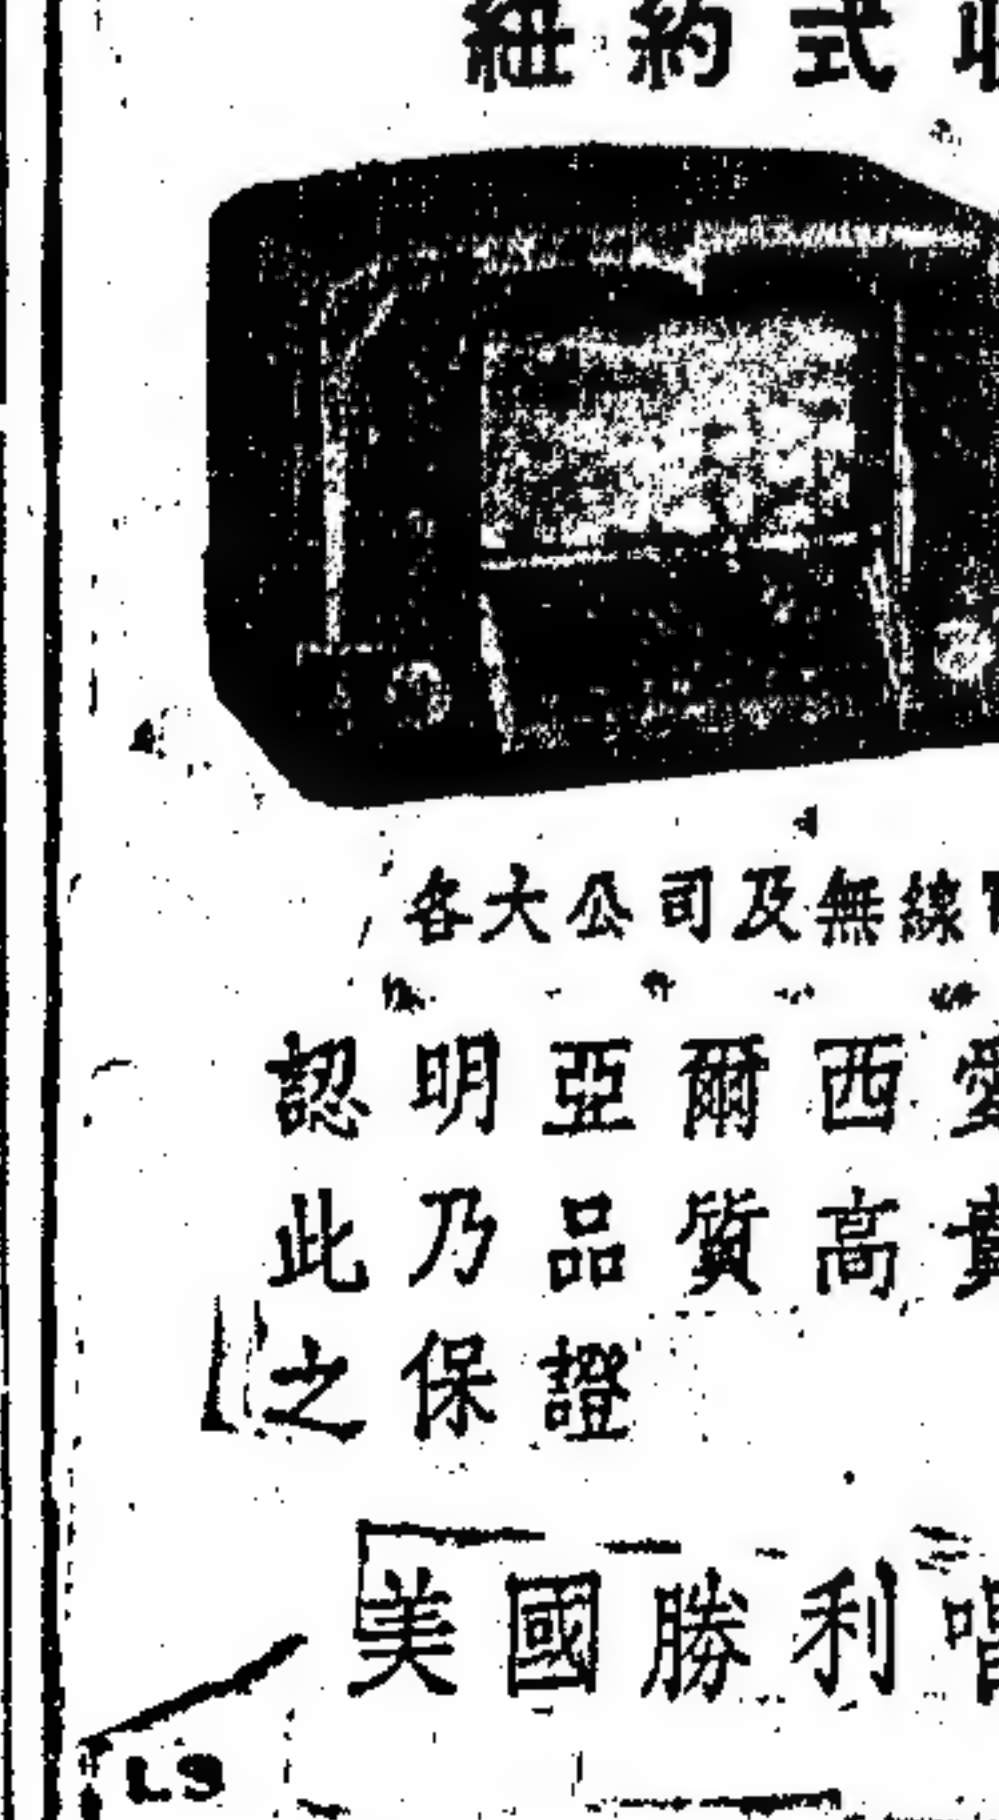 紐約式收
各大公司及無線
認明亞爾西愛
此乃品質高貴
之保證
美國勝利唱
L9